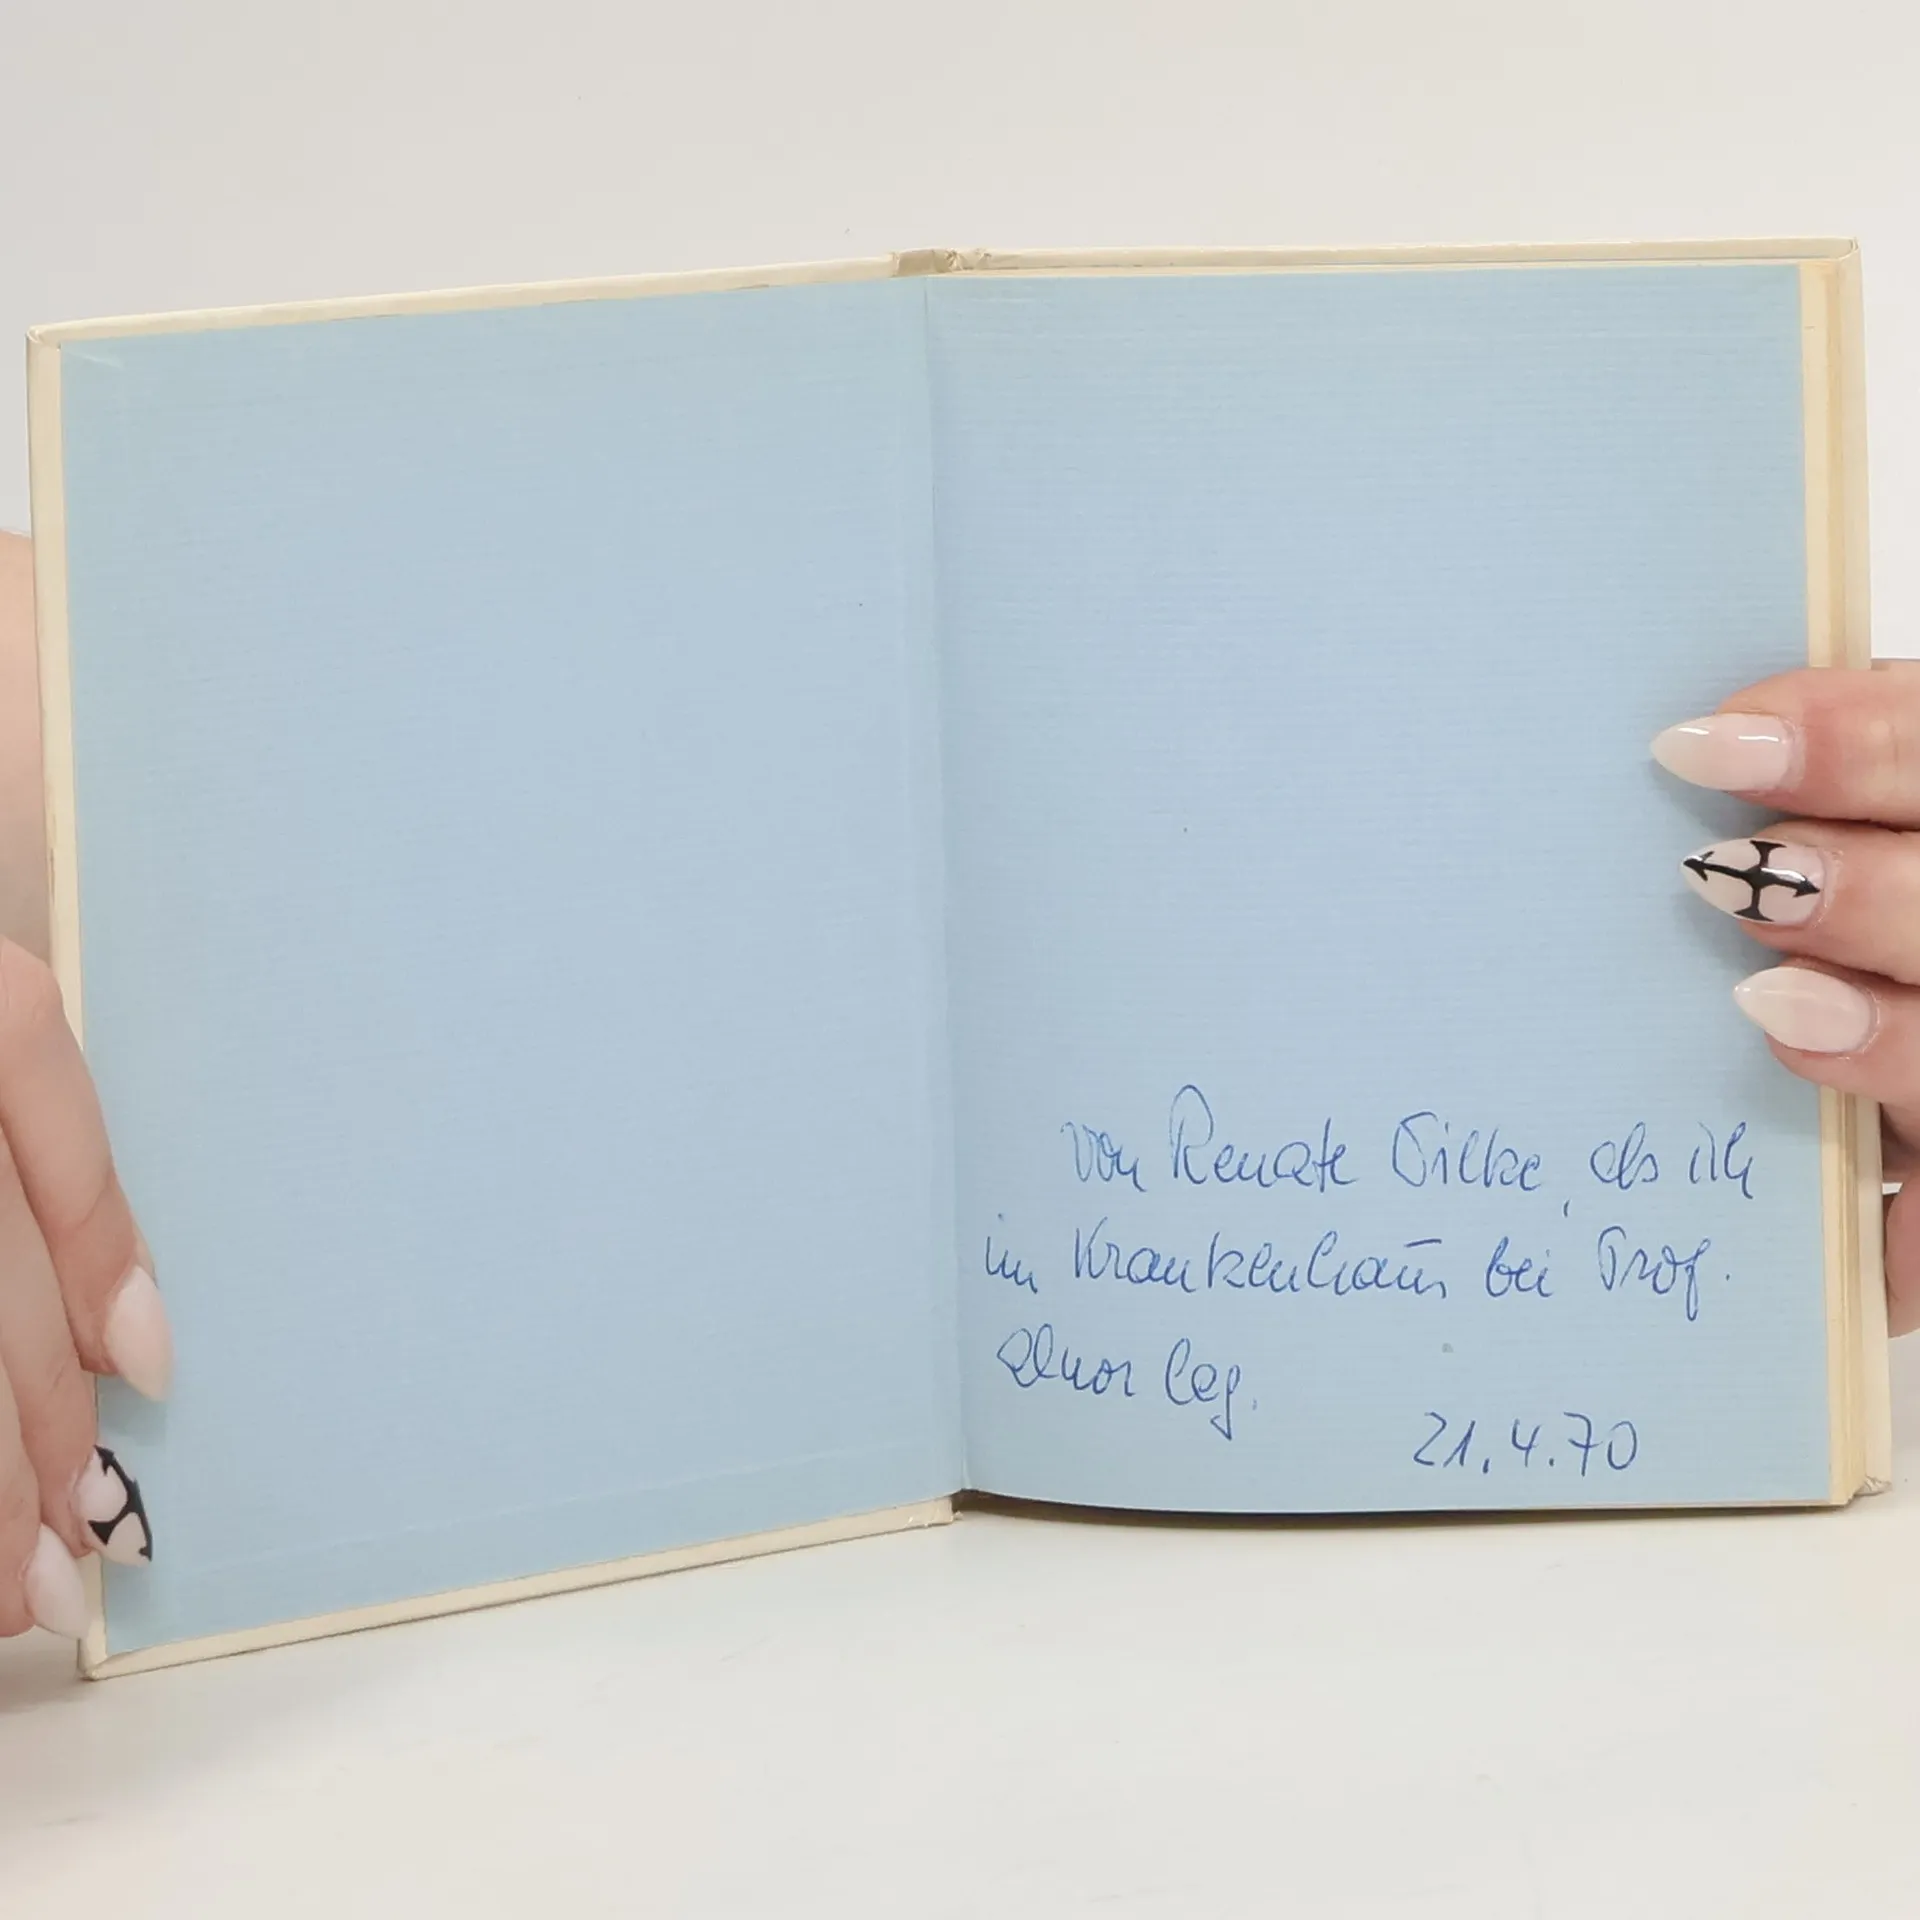 von Renate Silke, als ich
im Krankenhaus bei Prof.
lag.
21.4.70